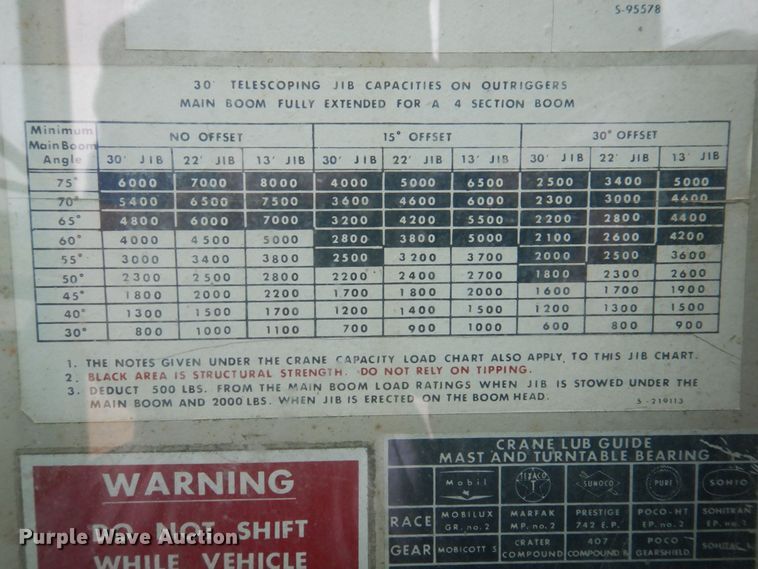 S-95578
30' TELESCOPING JIB CAPACITIES ON OUTRIGGERS
MAIN BOOM FULLY EXTENDED FOR A 4 SECTION BOOM
Minimum Main Boom Angle NO OFFSET 15° OFFSET 30° OFFSET
30' JIB 22' JIB 13' JIB 30' JIB 22' JIB 13' JIB 30' JIB 22' JIB 13' JIB
75° 6000 7000 8000 4000 5000 6500 2500 3400 5000
70° 5400 6500 7500 3600 4600 6000 2300 3000 4600
65° 4800 6000 7000 3200 4200 5500 2200 2800 4400
60° 4000 4500 5000 2800 3800 5000 2100 2600 4200
55° 3000 3400 3800 2500 3200 3700 2000 2500 3600
50° 2300 2500 2800 2200 2400 2700 1800 2300 2600
45° 1800 2000 2200 1700 1800 2000 1600 1700 1900
40° 1300 1500 1700 1200 1400 1500 1200 1300 1500
30° 800 1000 1100 700 900 1000 600 800 900
1. THE NOTES GIVEN UNDER THE CRANE CAPACITY LOAD CHART ALSO APPLY TO THIS JIB CHART.
2. BLACK AREA IS STRUCTURAL STRENGTH. DO NOT RELY ON TIPPING.
3. DEDUCT 500 LBS. FROM THE MAIN BOOM LOAD RATINGS WHEN JIB IS STOWED UNDER THE
MAIN BOOM AND 2000 LBS. WHEN JIB IS ERECTED ON THE BOOM HEAD.
S-219113
WARNING
DO NOT SHIFT
WHILE VEHICLE
CRANE LUB GUIDE
MAST AND TURNTABLE BEARING
Mobil TEXACO SUNOCO PURE SOHIO
RACE MOBILUX GR. no. 2 MARFAK MP. no. 2 PRESTIGE 742 E.P. POCO-HT EP. no. 2 SOHITRAN EP. no. 2
GEAR MOBICOTT S CRATER COMPOUND 407 COMPOUND POCO GEARSHIELD
Purple Wave Auction